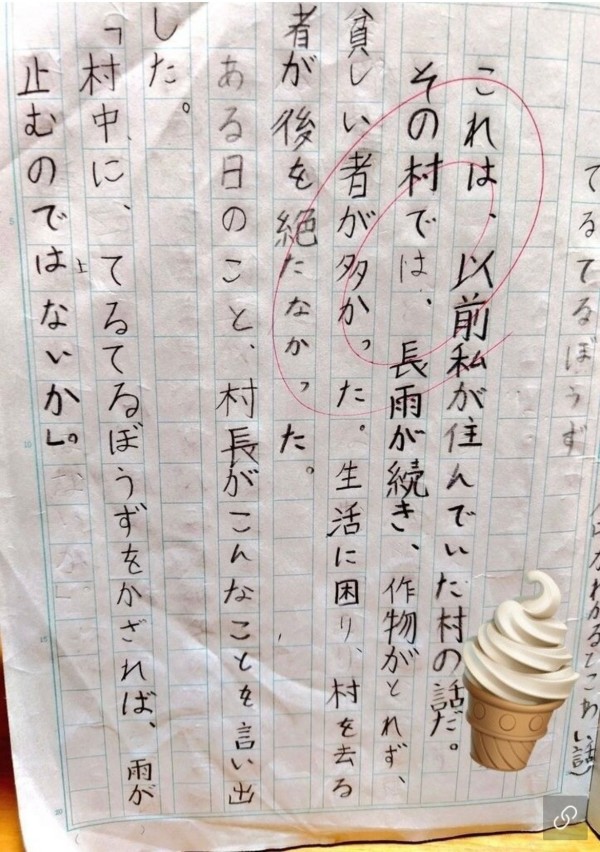 てるてるぼうず
わかるてこわい話)
これは、以前私が住んでいた村の話だ。
その村では、長雨が続き、作物がとれず、
貧しい者が多かった。生活に困り、村を去る
者が後を絶たなかった。
ある日のこと、村長がこんなことを言い出
した。
「村中に、てるてるぼうずをかざれば、雨が
止むのではないか」。